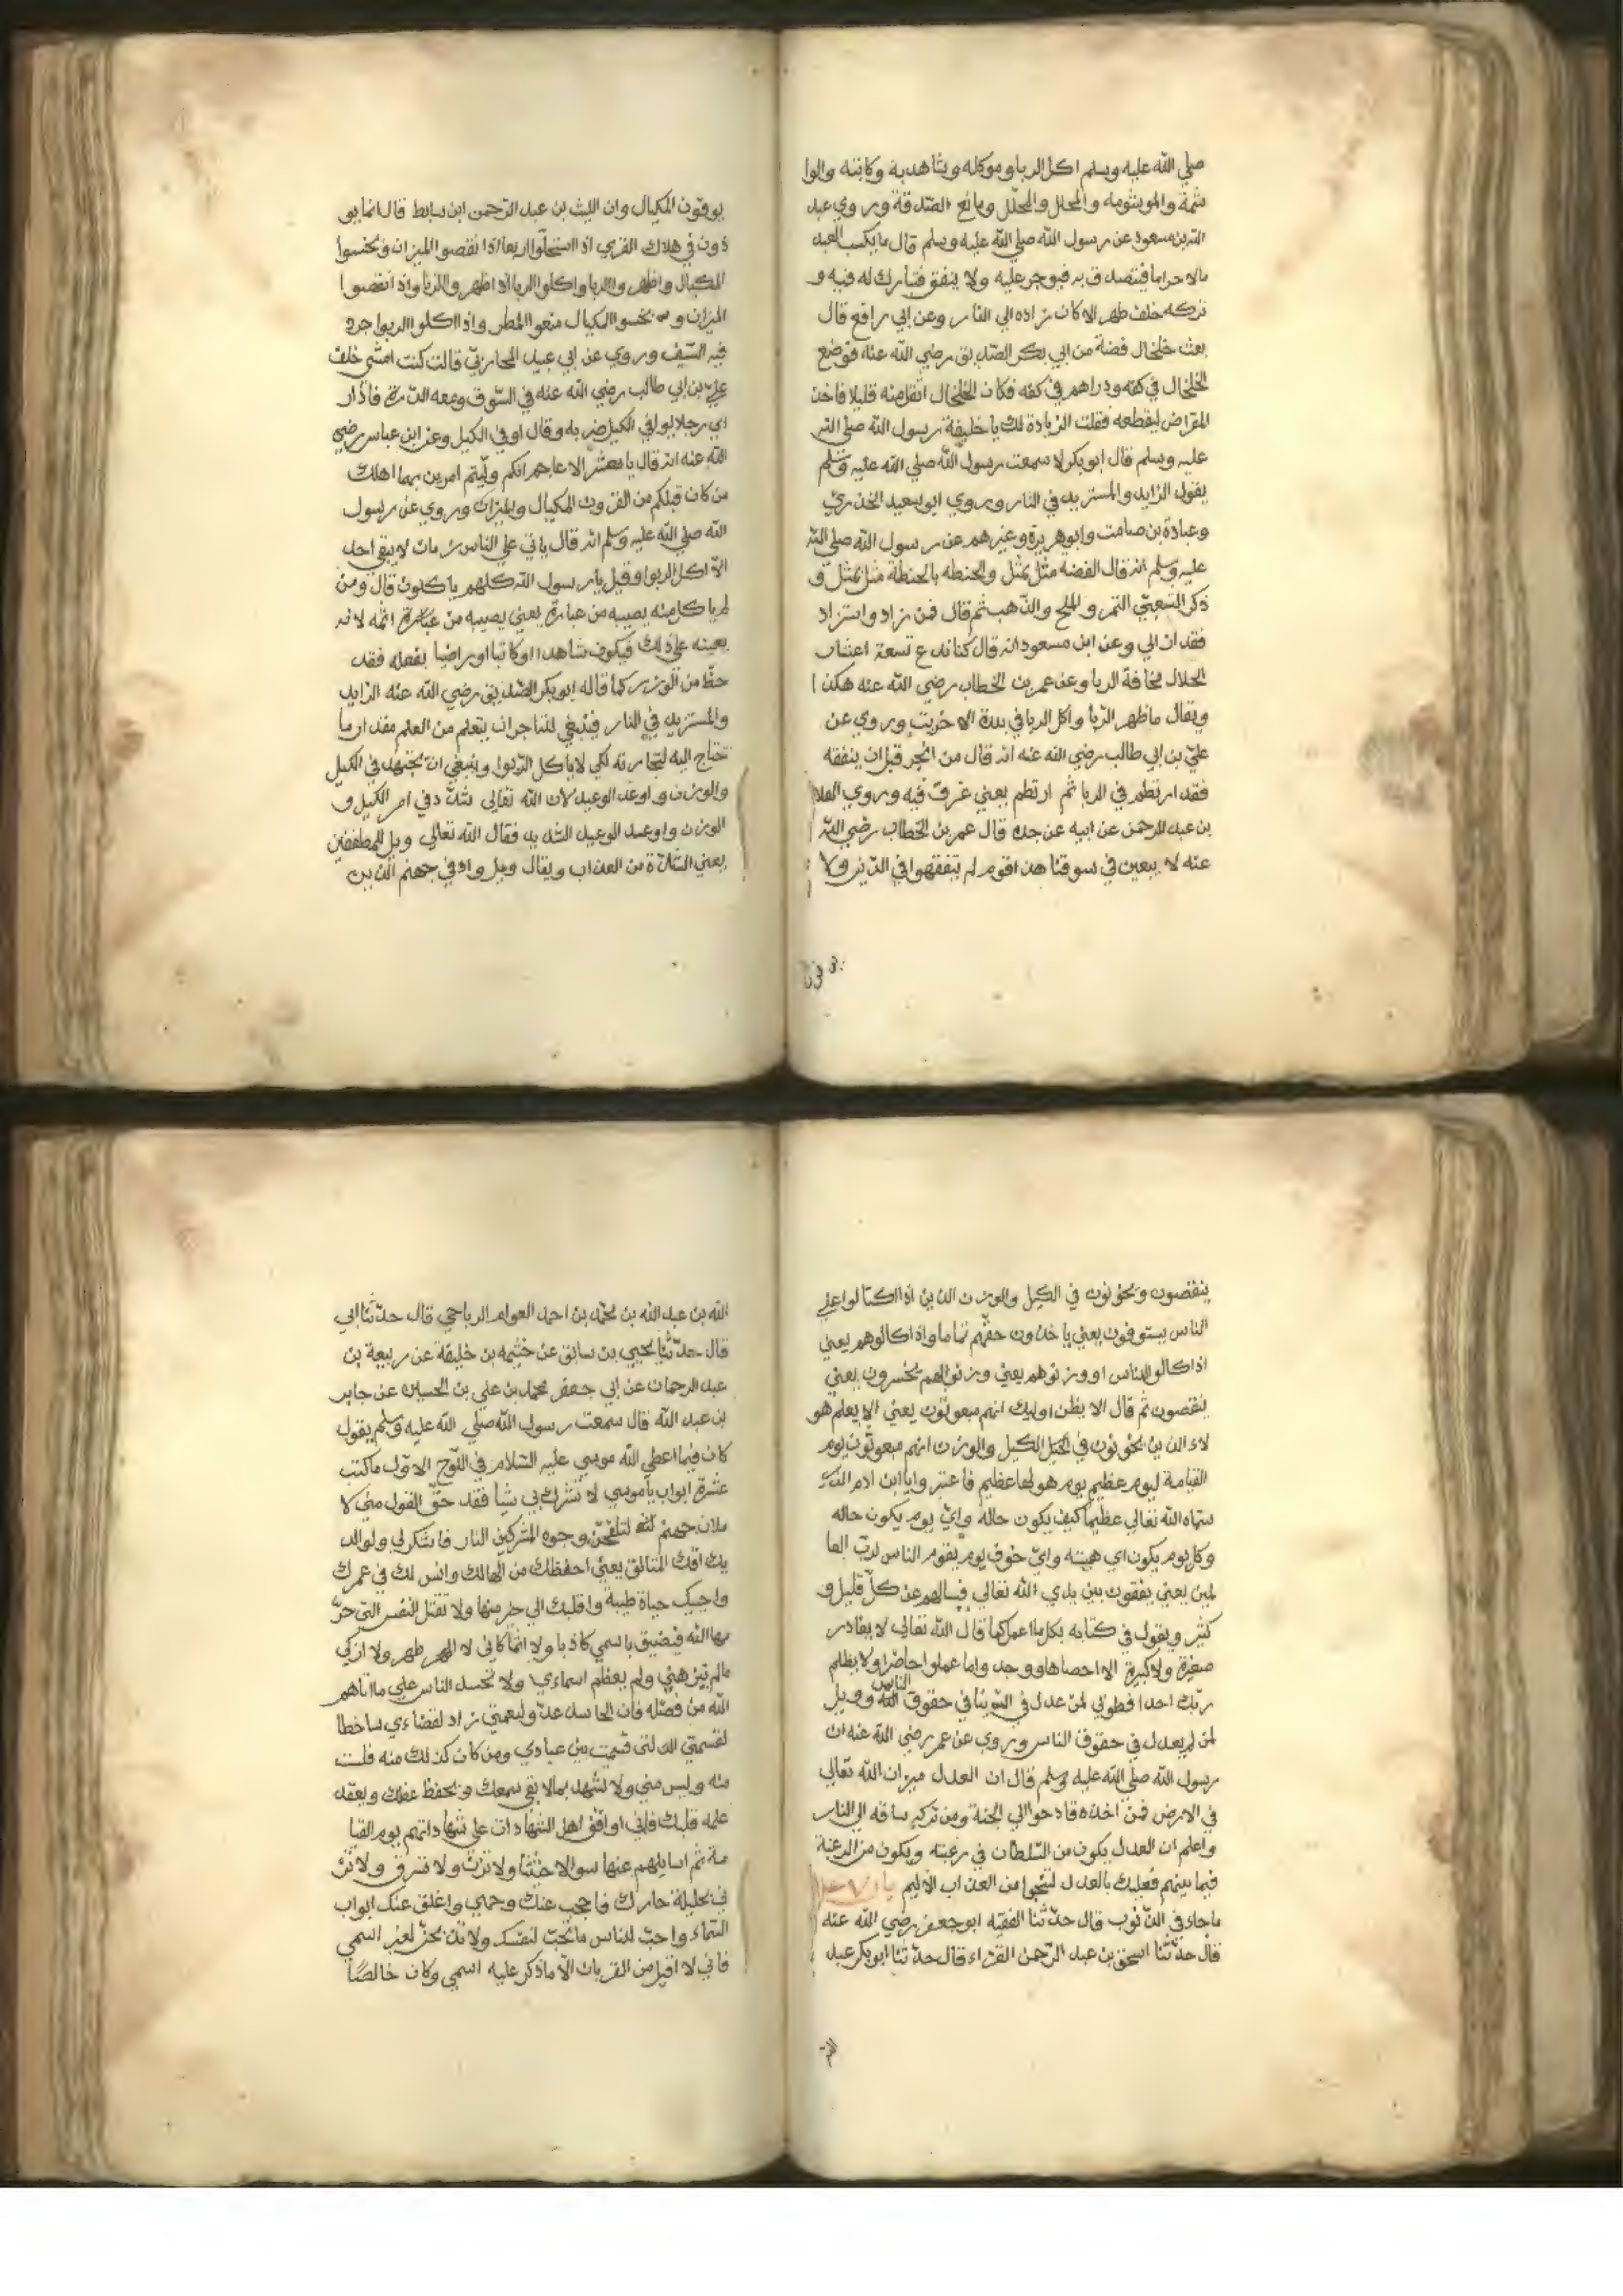 صلي الله عليه وسلم اكل الربا وموكله وشاهديه وكاتبه والوا
شمة والموشومه والمحلل والمحلّل ومانع الصّدقة وروي عبد
الله بن مسعود عن رسول الله صلي الله عليه وسلم قال ما يكسب العبد
مالا حراما فيتصدق به فيوجر عليه ولا ينفق فتبارك له فيه و
تركه خلف ظهره الا كان زاده الي النار وعن ابي رافع قال
بعث خلخال فضة من ابي بكر الصّديق رضي الله عنه فوضع
الخلخال في كفه ودراهم في كفه فكان الخلخال اثقل منه قليلا فاخذ
المقراض ليقطعه فقلت الزيادة لك يا خليفة رسول الله صلي الله
عليه وسلم قال ابو بكر لا سمعت رسول الله صلي الله عليه وسلم
يقول الزايد والمستزيد في النار وروي ابو سعيد الخذري
وعبادة بن صامت وابو هريرة وغيرهم عن رسول الله صلي الله
عليه وسلم انه قال الفضه مثل بمثل والحنطه بالحنطة مثل بمثل و
ذكر الشعبّي التمر والملح والذّهب ثم قال فمن زاد واستزاد
فقد اربي وعن ابن مسعود انه قال كنا ندع تسعة اعشار
الحلال مخافة الربا وعن عمر بن الخطاب رضي الله عنه هكذا
ويقال ما ظهر الرّبا واكل الربا في بلدة الا خربت وروي عن
عليّ بن ابي طالب رضي الله عنه انه قال من اتجر قبل ان يتفقه
فقد ارتطم في الربا ثم ارتطم يعني غرق فيه وروي العلا
بن عبد الرحمن عن ابيه عن جده قال عمر بن الخطاب رضي الله
عنه لا يبيعن في سوقنا هذا قوم لم يتفقهوا في الدّين ولا
يوفون المكيال وان الليث بن عبد الرّحمن ابن سابط قال انما يو
ذون في هلاك القري اذا استحلّوا اربعا اذا نقصوا الميزان وبخسوا
المكيال واظهروا الربا واكلوا الربا اذا اظهروا الزنا واذا نقصوا
الميزان وبخسوا المكيال منعوا المطر واذا اكلوا الربوا جرد
فيه السّيف وروي عن ابي عبيد المحاربّي قالت كنت امشي خلف
علي بن ابي طالب رضي الله عنه في السّوق ومعه الدّرة فاذا را
اي رجلا يوفي الكيل ضربه وقال اوفي الكيل وعن ابن عباس رضي
الله عنه انه قال يا معشر الاعاجم انكم ولّيتم امرين بهما اهلك
من كان قبلكم من القرون المكيال والميزان وروي عن رسول
الله صلي الله عليه وسلم انه قال ياتي علي الناس زمان لا يبقي احد
الا اكل الربوا وقيل يا رسول الله كلهم ياكلون قال ومن
لم ياكل منه يصيبه من غباره يعني يصيبه من غباره اثمه لانه
يعينه علي ذلك فيكون شاهدا او كاتبا او راضيا بفعله فقد
حظّ من الوزر كما قاله ابو بكر الصّديق رضي الله عنه الزايد
والمستزيد في النار فينبغي للتاجر ان يتعلم من العلم مقدار ما
تحتاج اليه لتجارته لكي لا ياكل الرّبوا وينبغي ان يجتهد في الكيل
والوزن واوعد الوعيد لان الله تعالي شدّد في امر الكيل و
الوزن واوعد الوعيد الشديد فقال الله تعالي ويل للمطففين
يعني الشدّة من العذاب ويقال ويل وادي في جهنم الذين
ينقصون ويخونون في الكيل والوزن الذين اذا اكتالوا علي
الناس يستوفون يعني ياخذون حقّهم تماما واذا كالوهم يعني
اذا كالوا للناس او وزنوهم يعني وزنوا لهم يخسرون يعني
ينقصون ثم قال الا يظن اوليك انهم مبعوثون يعني الا يعلم هو
لاء الذين يخونون في الكيل والوزن انهم مبعوثون يوم
القيامة ليوم عظيم يوم هولها عظيم فاعتبروا يا ابن ادم الذي
سمّاه الله تعالي عظيما كيف يكون حاله وايّ يوم يكون حاله
وكل يوم يكون اي هيبته وايّ خوف يوم يقوم الناس لربّ العا
لمين يعني يقفون بين يدي الله تعالي فيسالهم عن كلّ قليل و
كثير ويقول في كتابه بكل ما عمل كما قال الله تعالي لا يغادر
صغيرة ولا كبيرة الا احصاها ووجدوا ما عملوا حاضرا ولا يظلم
ربّك احدا فطوبي لمن عدل في الدّينا في حقوق الناس وويل
لمن لم يعدل في حقوق الناس وروي عن عمر رضي الله عنه ان
رسول الله صلي الله عليه وسلم قال ان العدل ميزان الله تعالي
في الارض فمن اخذه قاده الي الجنة ومن تركه ساقه الي النار
واعلم ان العدل يكون من السّلطان في رعيته ويكون من الرعية
فيما بينهم فعليك بالعدل لتنجوا من العذاب الاليم
ما جاء في الذّنوب قال حدّثنا الفقيه ابو جعفر رضي الله عنه
قال حدّثنا اسحق بن عبد الرّحمن القرّاء قال حدّثنا ابو بكر عبد
الله بن عبد الله بن محمّد بن احمد العوام الرياحي قال حدّثنا ابي
قال حدّثنا يحيي بن سابق عن خثيمه بن خليفة عن ربيعة بن
عبد الرحمان عن ابي جعفر محمد بن علي بن الحسين عن جابر
بن عبد الله قال سمعت رسول الله صلي الله عليه وسلم يقول
كان فيما اعطي الله موسي عليه السّلام في اللّوح الاوّل ما كتب
عشرة ابواب يا موسي لا تشرك بي شيا فقد حقّ القول مني لا
ملان جهنم لتلفحنّ وجوه المشركين النار فاشكر لي ولوالد
يك اقك المتالف يعني احفظك من المهالك وانس لك في عمرك
واحييك حياة طيبة واقلبك الي خير منها ولا تقتل النفس التي حرّ
مها الله فيضيق باسمي كاذبا ولا اثما كاني لا اطهر طهر ولا ازكي
مالم ينزهني ولم يعظم اسماءي ولا تحسد الناس علي ما اتاهم
الله من فضله فان الحاسد عدّو لنعمتي راد لقضاءي ساخطا
لقسمتي الله لتى قسمت بين عبادي ومن كان كذلك منه فلست
منه وليس مني ولا تشهد بما لا يقي سمعك ويحفظ عقلك ويعقد
عليه قلبك فاني اواقف اهل الشهادات علي شهاداتهم يوم القيا
مة ثم اسايلهم عنها سوالا حثيثا ولا تزن ولا تسرق ولا تزن
في بحليلة جارك فاحجب عنك وجهي واغلق عنك ابواب
السّماء واحبّ للناس ما تحبّ لنفسك ولا تذبحنّ لغير اسمي
فاني لا اقبل من القربات الّا ما ذكر عليه اسمي وكان خالصًا